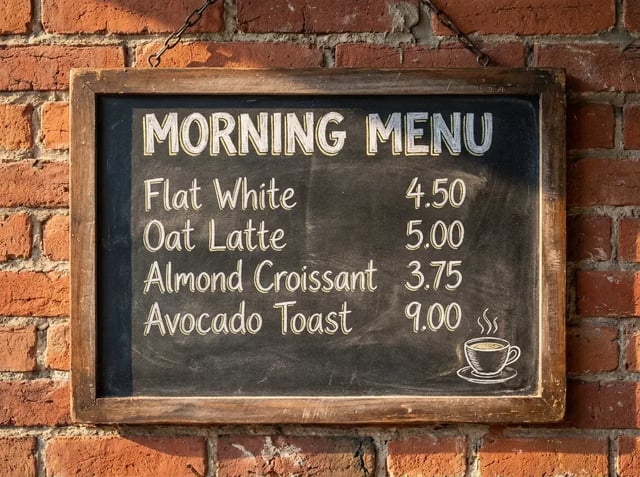 MORNING MENU
Flat White 4.50
Oat Latte 5.00
Almond Croissant 3.75
Avocado Toast 9.00